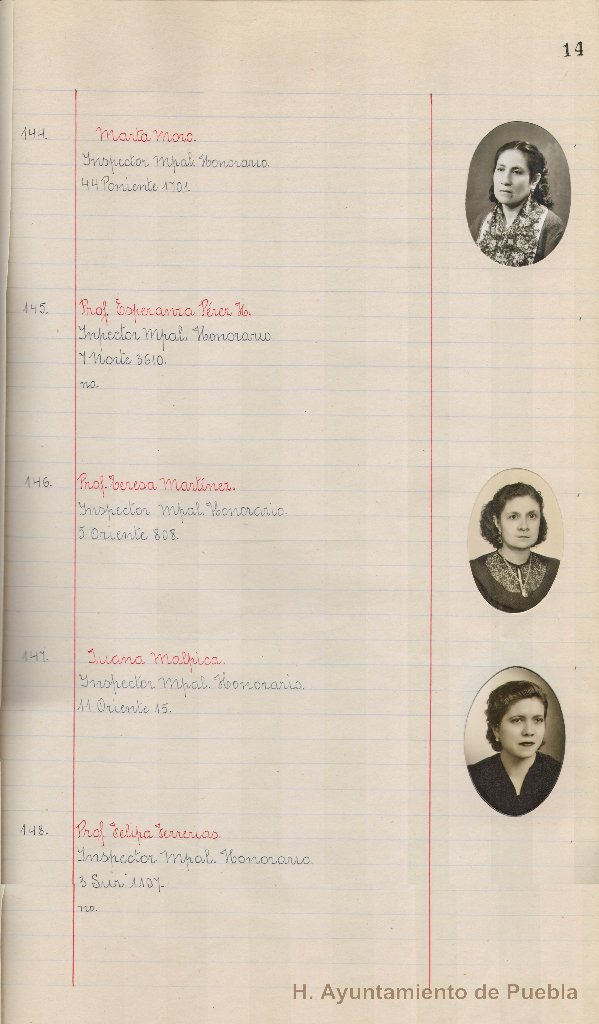 14
144. Marta Moro.
Inspector Mpal. Honorario.
44 Poniente 1701.
145. Prof. Esperanza Pérez H.
Inpector Mpal. Honorario.
7 Norte 3610.
no.
146. Prof. Teresa Martínez.
Inspector Mpal. Honorario.
5 Oriente 808.
147. Juana Malpica.
Inspector Mpal. Honorario.
11 Oriente 15.
148. Prof. Felipa Ferrerias.
Inspector Mpal. Honorario.
3 Sur 1107.
no.
H. Ayuntamiento de Puebla